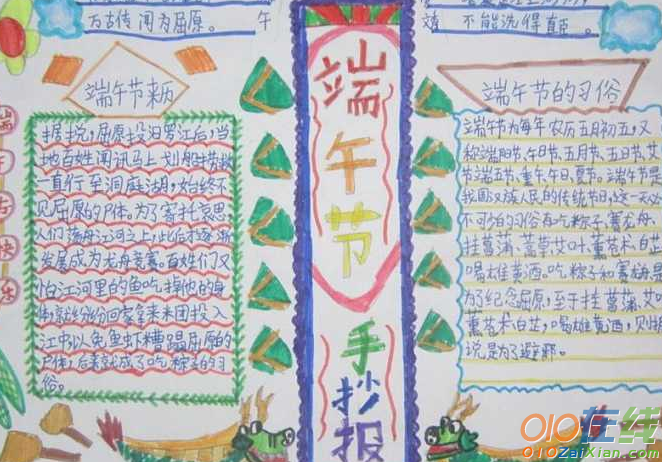 万古传闻为屈原。
午
不能洗得直臣。
端午节
手抄报
端午节来历
据说,屈原投汨罗江后,当
地百姓闻讯马上划船捞救
一直行至洞庭湖,始终不
见屈原的尸体。为了寄托哀思
人们荡舟江河之上,此后才逐渐
发展成为龙舟竞赛。百姓们又
怕江河里的鱼吃掉他的身
体,就纷纷回家拿来米团投入
江中以免鱼虾糟蹋屈原的
尸体,后来就成了吃粽子的习
俗。
端午节的习俗
端午节为每年农历五月初五,又
称端阳节、午日节、五月节、五日节、艾
节、端五、重午、午日、夏节。端午节是
我国汉族人民的传统节日,这一天必
不可少的习俗有吃粽子、赛龙舟、
挂菖蒲、蒿草、艾叶、薰苍术、白芷
喝雄黄酒。吃粽子和赛龙舟是
为了纪念屈原,至于挂菖蒲、艾叶
薰苍术、白芷,喝雄黄酒,则据
说是为了避邪。
午
节
快
乐
010在线
010ZaiXian.com